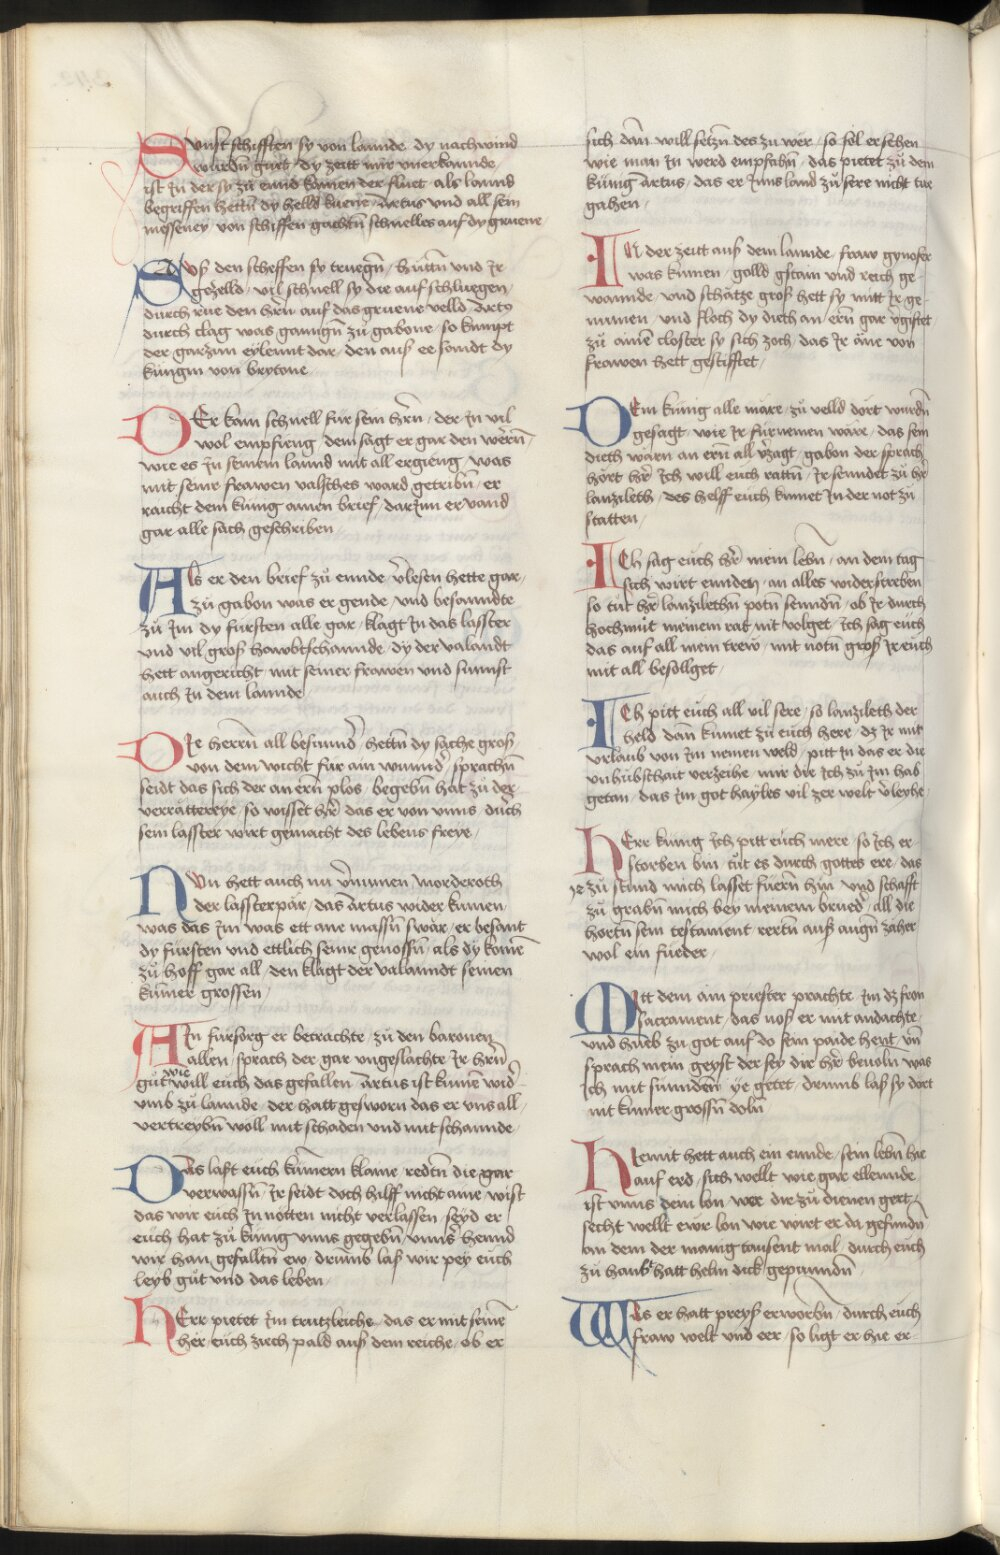 SUnst schifften sy von lannde, dy nachwind
wurdn̄ gut, dy zeitt mir vnerkannde
ist Jn der sy zu ennd kamen der fluet, als lannd
begriffen hettn̄ dy helld kuene, Artus vnd all sein
messeney, von schiffen gachtn̄ schnelles auf dy gruene
AUs den scheffen sy truegn̄, huttn̄ vnd Jr
gezelld, vil schnell sy die auf schluegen
durch rue den hrn̄ auf das gruene velld Artus
durch clag was ganngn̄ zu gabone, so kumpt
der garzun eylennt dar, den auss ee sandt dy
kungin von brytone
DEr kam schnell fur sein hrn̄, der Jn vil
wol empfieng, dem sagt er gar den wern̄,
wie es Jn seinem lannd mit all ergieng, was
mit seinr frawen valsches ward getribn̄, er
raicht dem kunig ainen brief, darJnn er vand
gar alle sach geschriben
Als er den brief zu ennde v̄lesen hette gar,
zu gabon was er gende, vnd besanndte
zu Jm dy fursten alle gar, klagt Jn das lasster
vnd vil gross hawbtschannde, dy der valandt
hett angericht mit seiner frawen vnd sunnst
auch Jn dem lannde
DJe herrn̄ all besunnd̄, hettn̄ dy sache gross,
von dem wicht fur ain wunnd̄, sprachn̄
seidt das sich der an ern̄ plos, begebn̄ hat zu der
verrätterey, so wisset hr̄ das er von vnns durch
sein lasster wirt gemacht des lebens freye,
NUn hett auch nu v̄numen Morderoth
der lassterpar, das Artus wider kumen
was das Jm was ett ane massn̄ swar, er besant
dy fursten vnd ettlich seinr genossn̄, als dy komē
zu hoff gar all, den klagt der valanndt seinen
kumer grossen,
AIn fursorg er betrachte, zu den baronen
allen, sprach der gar vngeslachte Jr hrn̄
gut wie will euch das gefallen Artus ist kumē wid̄
vmb zu lannde, der hatt gesworn das er vns all,
vertreybn̄ woll mit schaden vnd mit schannde,
DAs last euch kumern klaine, redtn̄ die gar
verwassn̄, Jr seidt doch hilff nicht aine wist
das wir euch Jn notten nicht verlassen, seyd er
euch hat zu kunig vnns gegebn̄, vnns̄ hennd
wir han gefalltn̄ ew, drumb las wir pey euch
leyb gut vnd das leben,
HErr pietet Jm trutzleiche, das er mit seinē
her, euch zieh pald auss dem reiche, ob er
sich dan̄ will setzn̄ des zu wer, so sol er sehen
wie man Jn werd empfahn̄, das pietet zu dem
kunig Artus, das er Jnns land zu sere nicht tue
gahen,
IN der zeitt auss dem lannde, fraw gynofer
was kumen, golld gstain vnd reich ge-
wannde, vnd schätze gross hett sy mitt Jr ge-
numen, vnd floch dy dieth an ern̄ gar v̄gifftet,
zu ainē closter sy sich zoch, das Jr ane von
frawen hett gestifftet,
DEm kunig alle märe, zu velld dort wurdn̄
gesagt, wie Jr furnemen wäre, das sein
dieth warn an ern̄ all v̄zagt, gabon der sprach
hort hr̄ Jch will euch rattn̄, Jr senndet zu hr̄
lanziloth, des helff euch kumet Jn der not zu
statten,
ICh sag euch hr̄ mein lebn̄, an dem tag
sich wirt ennden, an alles widerstreben
so tut hr̄ lanzilethn̄ potn̄ senndn̄, ob Jr durch
hochmut meinem rat nit volget, Jch sag euch
das auf all mein trew, mit notn̄ gross Jr euch
mit all besollget,
ICh pitt euch all vil sere, so lanzileth der
held dan̄ kumet zu euch here, dz Jr mit
vrlaub von Jm nemen welld, pitt Jn das er die
vnhubschait verzeihe, mir die Jch zu Jm hab
getan, das Jm got hayles vil zer welt v̄leyhe,
HErr kunig Jch pitt euch mere, so Jch er-
storben bin, tut es durch gottes ere, das
Jr zu stund mich lasset fuern̄ hin, vnd schafft
zu grabn̄ mich bey meinem brued̄, all die
hortn̄ sein testament, rertn̄ auss augn̄ zäher
wol ein fueder,
MItt dem ain priester prachte, Jm dz fron
sacrament, das nos er mit andachte,
vnd hueb zu got auf do sein paide hent, vn̄
sprach mein geyst der sey dir hr̄ beuoln̄ was
Jch mit sunnden̄ ye getet, drumb las sy dort
nit kumer grossn̄ doln̄
HIemit hett auch ein ennde, sein lebn̄ hie
auf erd, sich wellt wie gar ellennde
ist vnns dein lon, wer dir zu dienen gert,
secht wellt ewr lon wie wirt er da gefundn̄
an dem der manig tausent mal, durch euch
zu haubt hatt helm dick gepunndn̄
WAs er hatt preyss erworbn̄, durch euch
fraw welt vnd eer, so ligt er hie er-